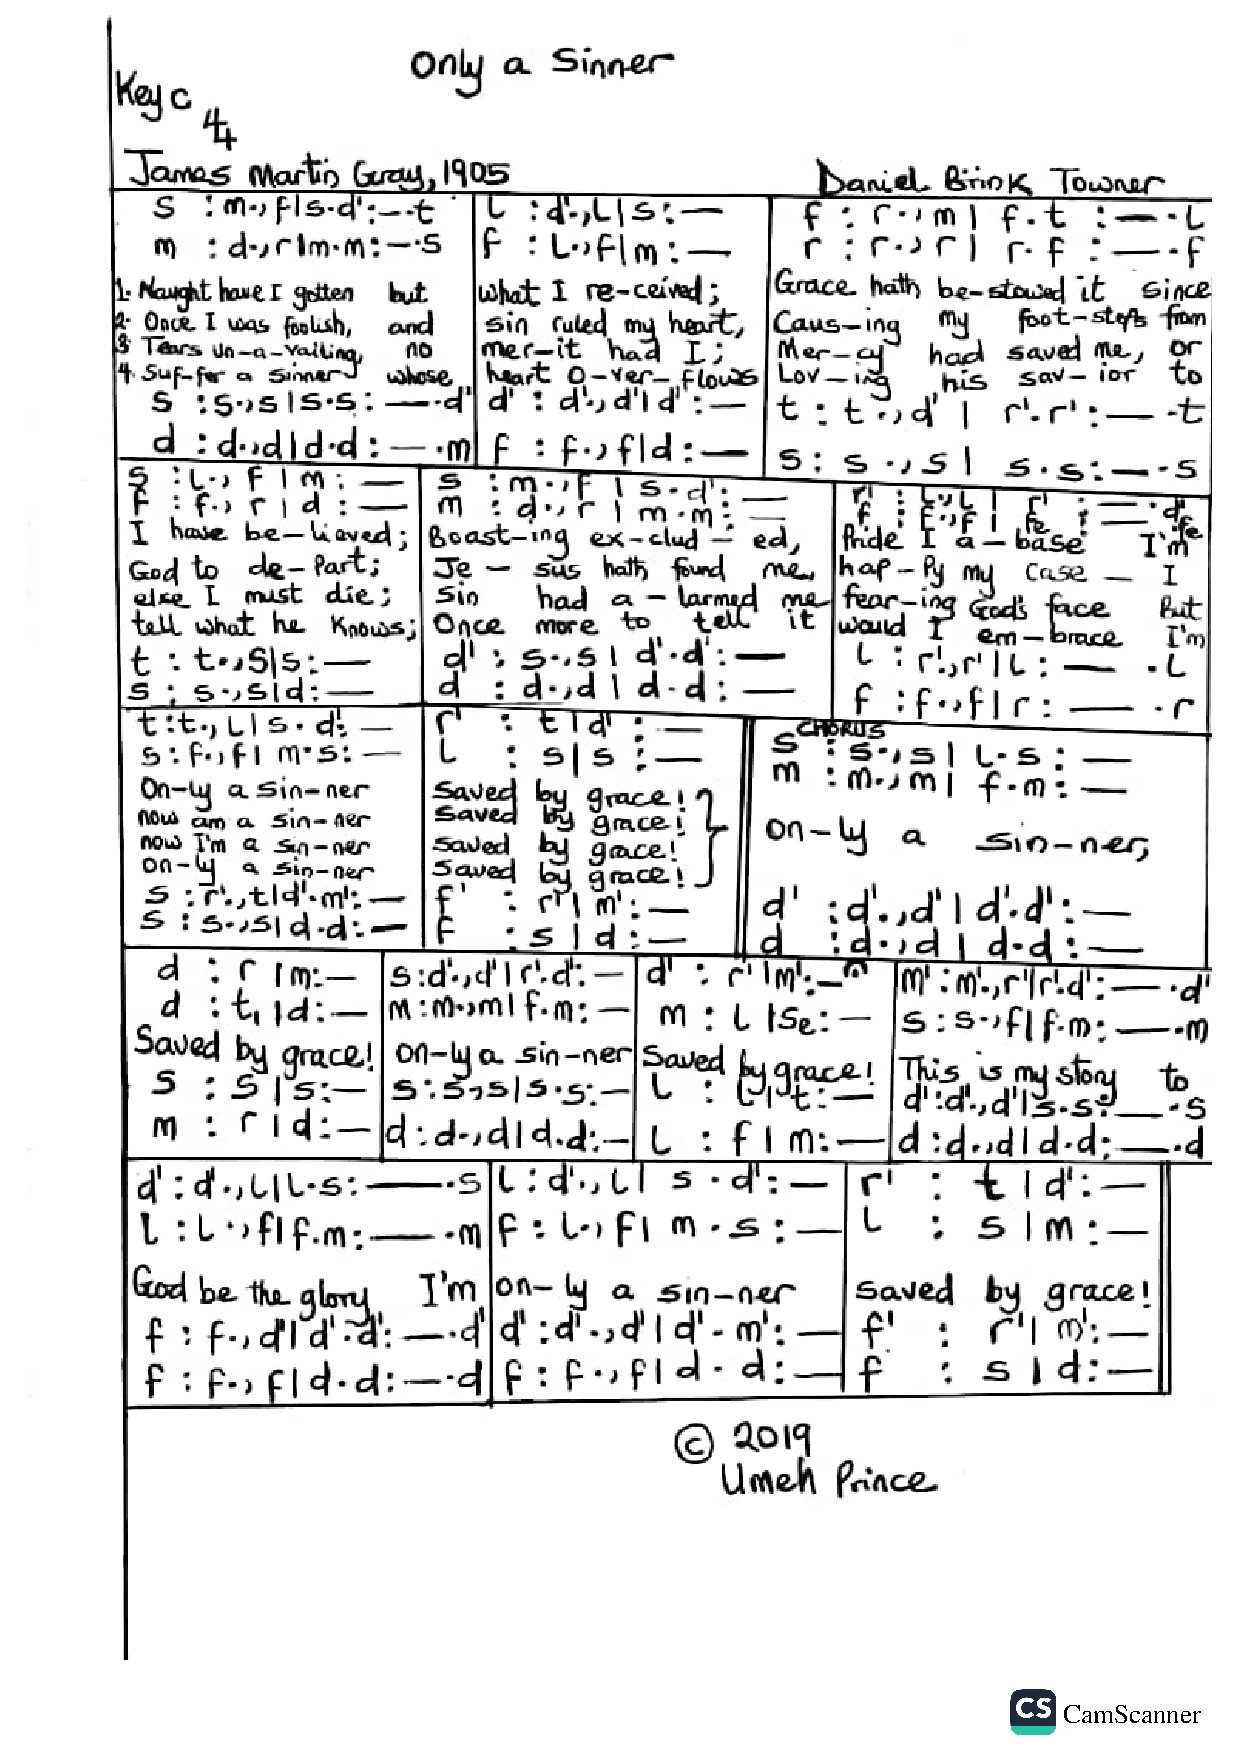 Only a Sinner
Key C
4
4
James Martin Gray, 1905
Daniel Brink Towner
s : m., f | s. d' : — . t
l : d'., l | s : —
f : r ., m | f . t : — . l
m : d., r | m. m : — . s
f : l., f | m : —
r : r ., r | r . f : — . f
1. Naught have I gotten but
what I re-ceived;
Grace hath be-stowed it since
2. Once I was foolish, and
sin ruled my heart,
Caus-ing my foot-steps from
3 Tears un-a-vailing, no
mer-it had I;
Mer-cy had saved me, or
4. Suf-fer a sinner whose
heart o-ver-flows
Lov-ing his sav-ior to
s : s., s | s. s : — . d'
d' : d'., d' | d' : —
t : t ., d' | r'. r' : — . t
d : d., d | d. d : — . m
f : f ., f | d : —
s : s ., s | s . s : — . s
s : l ., f | m : —
s : m ., f | s . d' : —
f : f ., r | d : —
m : d ., r | m . m : —
I have be-lieved;
Boast-ing ex-clud-ed,
Pride I a-base I'm
God to de-part;
Je-sus hath found me,
hap-py my case — I
else I must die;
sin had a-larmed me
fear-ing God's face But
tell what he knows;
Once more to tell it
would I em-brace I'm
t : t ., s | s : —
d' : s ., s | d'. d' : —
l : r'., r' | l : — . l
s : s ., s | d : —
d : d ., d | d . d : —
f : f ., f | r : — . r
t : t ., l | s . d' : —
r' : t | d' : —
CHORUS
s : s ., s | l . s : —
s : f ., f | m . s : —
l : s | s : —
m : m ., m | f . m : —
on-ly a sin-ner
Saved by grace!
on-ly a sin-ner,
now am a sin-ner
Saved by grace!
now I'm a sin-ner
saved by grace!
on-ly a sin-ner
saved by grace!
s : r'., t | d'. m' : —
f' : r' | m' : —
d' : d'., d' | d'. d' : —
s : s ., s | d . d : —
f : s | d : —
d : d ., d | d . d : —
d : r | m : —
s : d'., d' | r'. d' : —
d' : r' | m' : —
m' : m'., r' | r'. d' : — . d'
d : t, | d : —
m : m ., m | f . m : —
m : l | se : —
s : s ., f | f . m : — . m
Saved by grace!
on-ly a sin-ner
Saved by grace!
This is my story to
s : s | s : —
s : s ., s | s . s : —
l : l | t : —
d' : d'., d' | s . s : — . s
m : r | d : —
d : d ., d | d . d : —
l : f | m : —
d : d ., d | d . d : — . d
d' : d'., l | l . s : — . s
l : d'., l | s . d' : —
r' : t | d' : —
l : l ., f | f . m : — . m
f : l ., f | m . s : —
l : s | m : —
God be the glory I'm
on-ly a sin-ner
saved by grace!
f : f ., d' | d'. d' : — . d'
d' : d'., d' | d'. m' : —
f' : r' | m' : —
f : f ., f | d . d : — . d
f : f ., f | d . d : —
f : s | d : —
© 2019
Umeh Prince
CS CamScanner